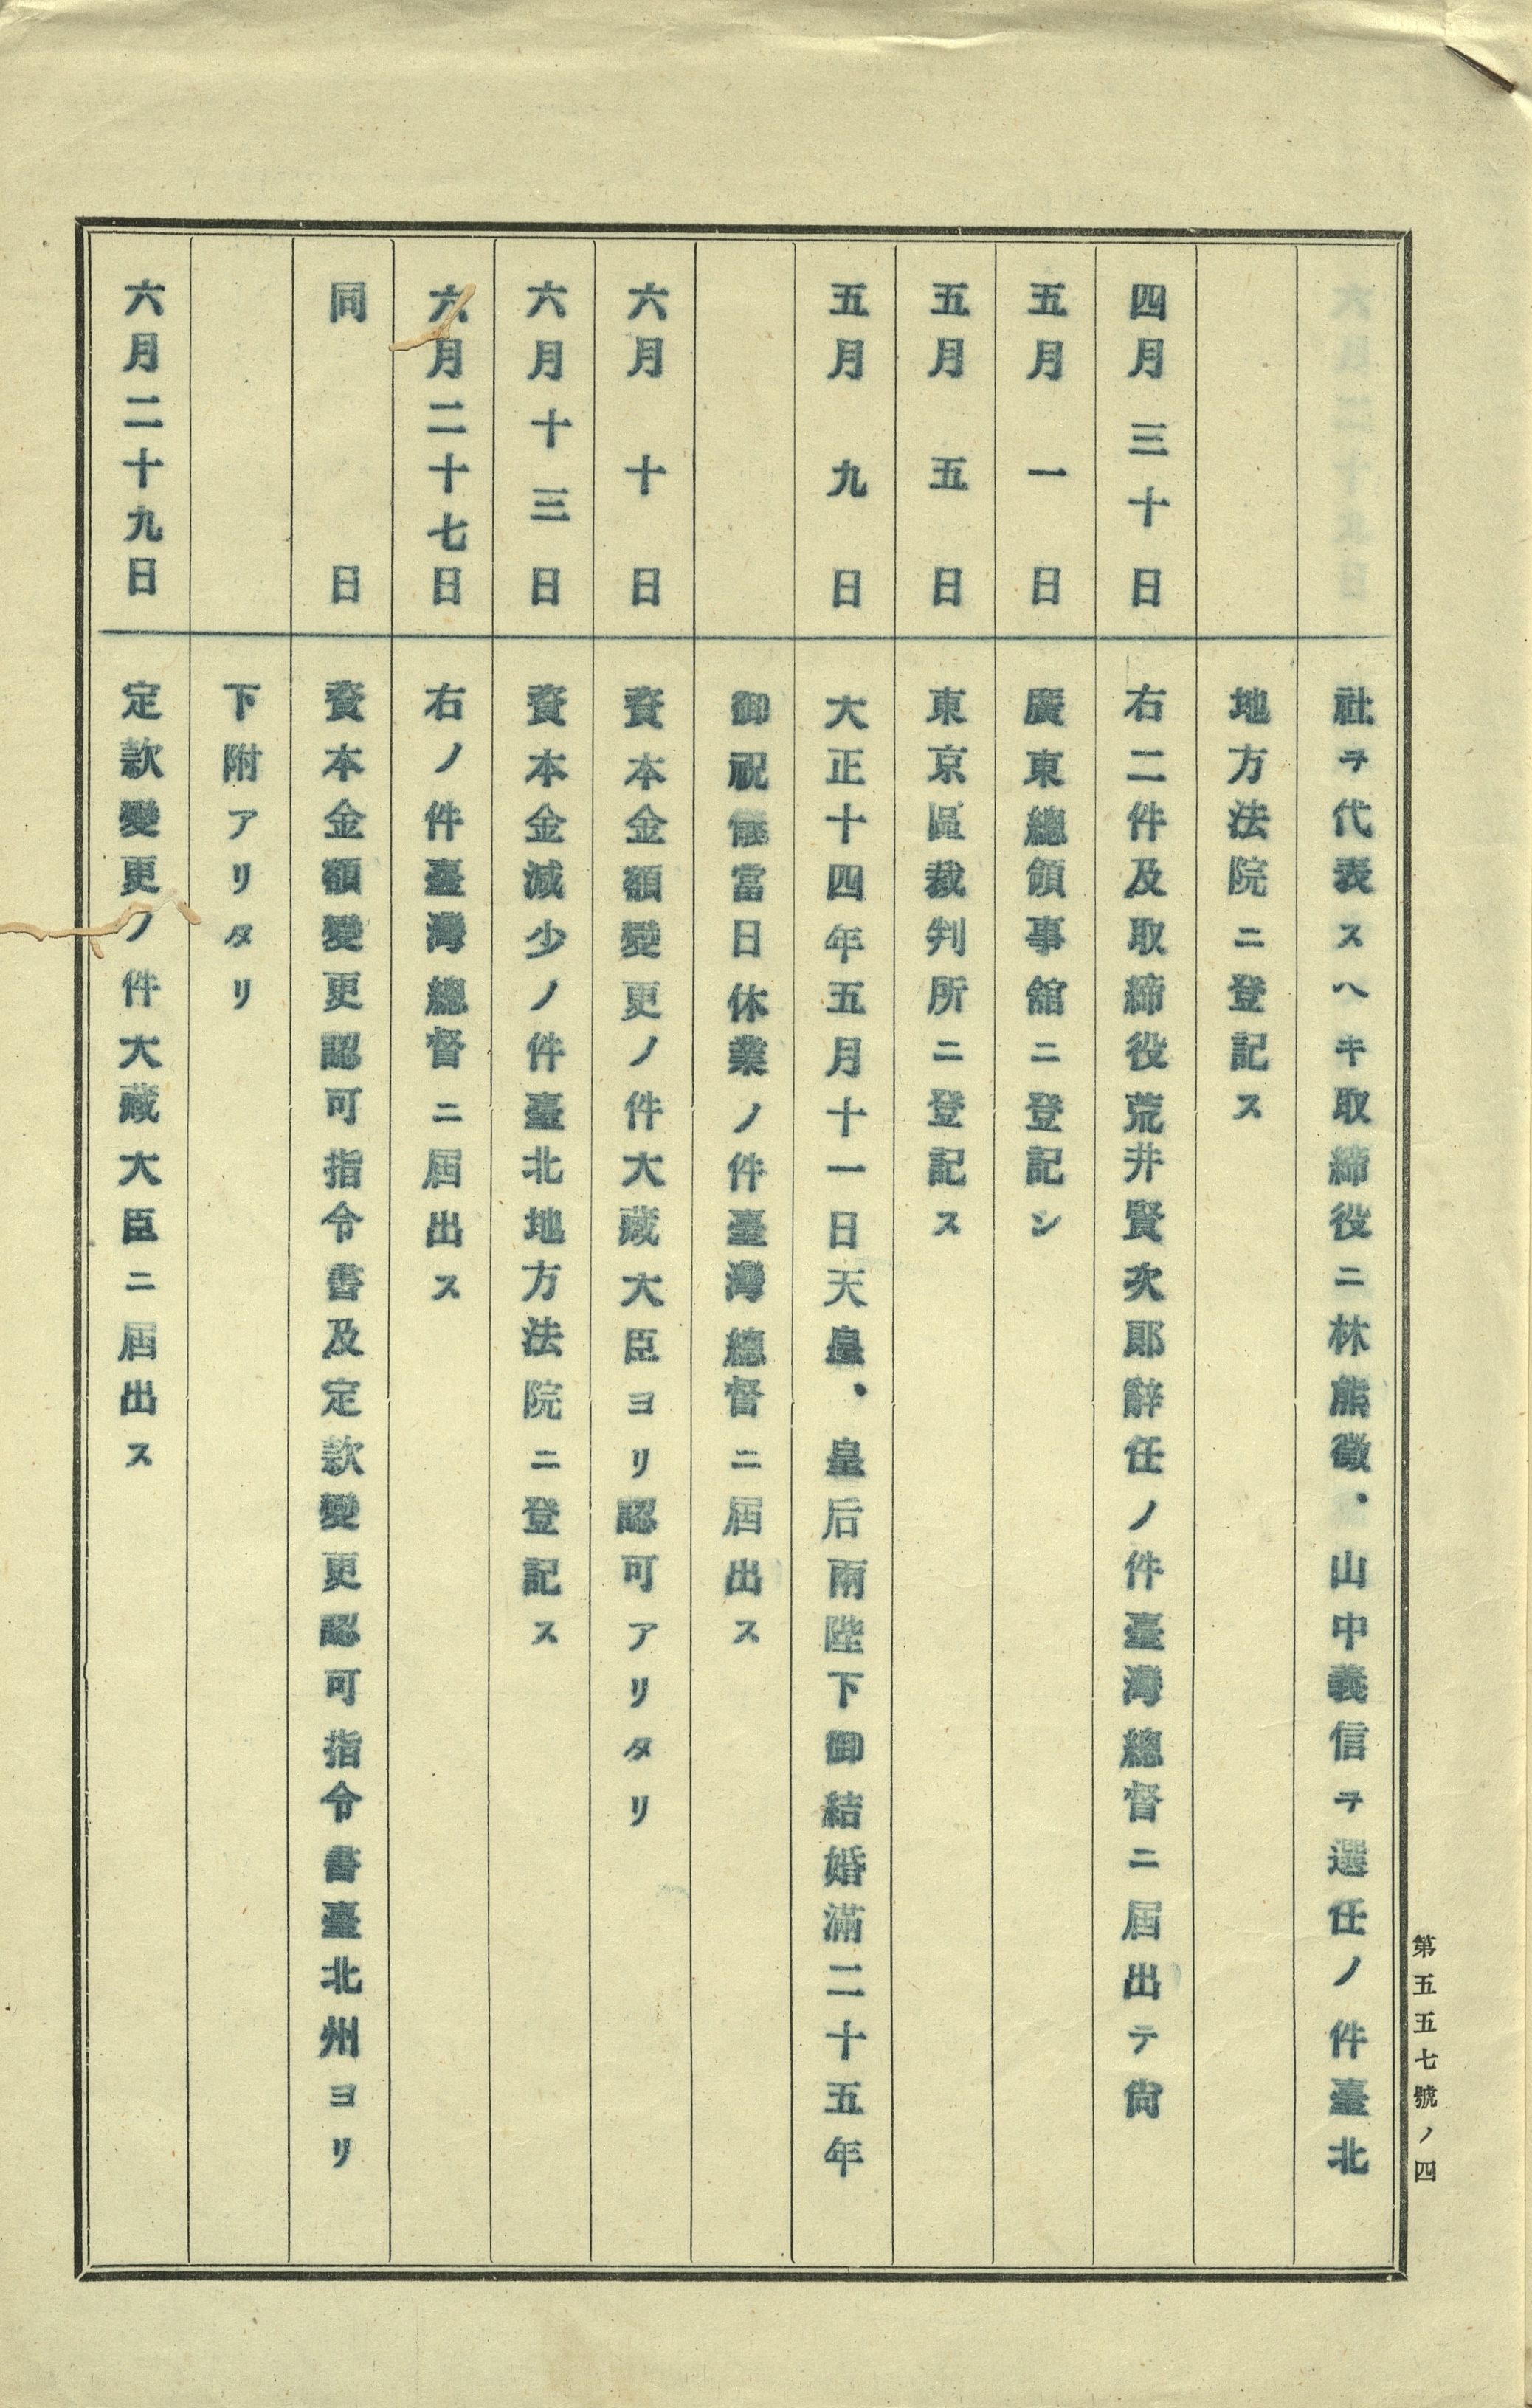 社ヲ代表スヘキ取締役ニ林熊徵、山中義信ヲ選任ノ件臺北
地方法院ニ登記ス
四月三十日 右二件及取締役荒井賢次郎辭任ノ件臺灣總督ニ屆出テ尙
五月一日 廣東總領事館ニ登記シ
五月五日 東京區裁判所ニ登記ス
五月九日 大正十四年五月十一日天皇、皇后兩陛下御結婚滿二十五年
御祝儀當日休業ノ件臺灣總督ニ屆出ス
六月十日 資本金額變更ノ件大藏大臣ヨリ認可アリタリ
六月十三日 資本金減少ノ件臺北地方法院ニ登記ス
六月二十七日 右ノ件臺灣總督ニ屆出ス
同日 資本金額變更認可指令書及定款變更認可指令書臺北州ヨリ
下附アリタリ
六月二十九日 定款變更ノ件大藏大臣ニ屆出ス
第五五七號ノ四